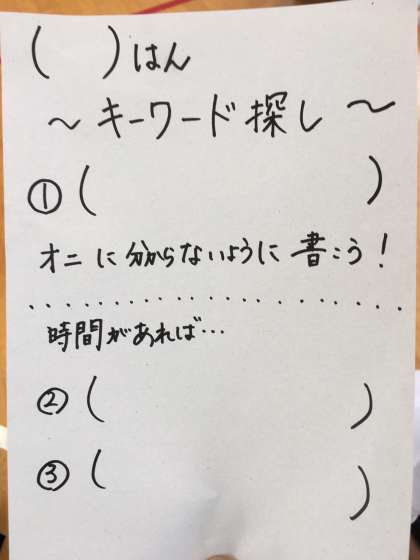 (　　)はん
～キーワード探し～
①(　　　　　　　　)
オニに分からないように書こう!
....................
時間があれば…
②(　　　　　　　　)
③(　　　　　　　　)